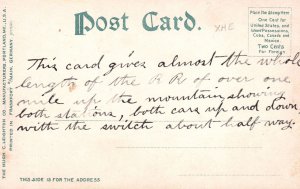 Post Card.
XHE
Place the Stamp Here
One Cent for
United States
and Island
Possessions,
Cuba, Canada and
Mexico
Two Cents
For Foreign
This card gives almost the whole
length of the R R of over one
mile up the mountain showing
both stations, both cars up and down
with the switch about half way.
THE HUGH C. LEIGHTON CO., MANUFACTURERS, PORTLAND, ME., U.S.A.
PRINTED IN FRANKFORT MAIN, GERMANY.
THIS SIDE IS FOR THE ADDRESS